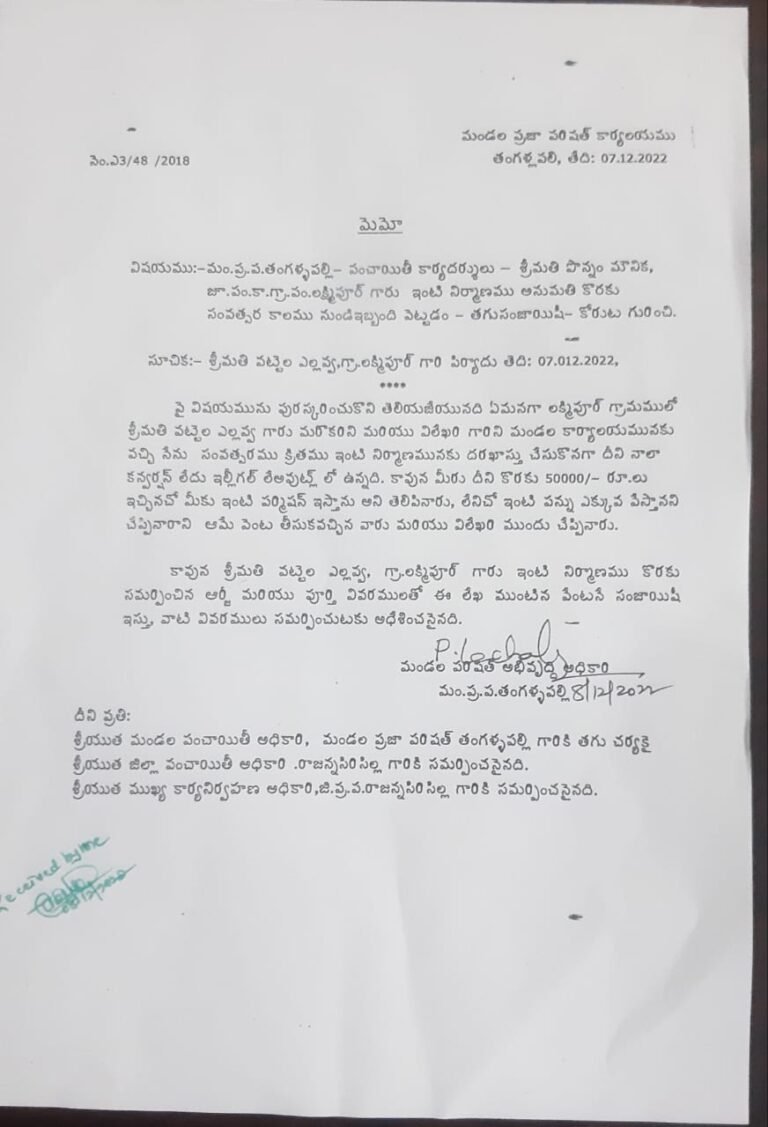 మండల ప్రజా పరిషత్ కార్యలయము
నెం.ఎ3/48 /2018
తంగళ్లపలి, తేది: 07.12.2022
మెమో
విషయము:-మం.ప్ర.ప.తంగళ్ళపల్లి- పంచాయితీ కార్యదర్శులు - శ్రీమతి పొన్నం మౌనిక,
జూ.పం.కా.గ్రా.పం.లక్ష్మిపూర్ గారు ఇంటి నిర్మాణము అనుమతి కొరకు
సంవత్సర కాలము నుండిఇబ్బంది పెట్టడం - తగుసంజాయిషీ- కోరుట గురించి.
సూచిక:- శ్రీమతి వట్టెల ఎల్లవ్వ,గ్రా.లక్ష్మిపూర్ గారి పిర్యాదు తెది: 07.012.2022,
****
పై విషయమును పురస్కరించుకొని తెలియజేయునది ఏమనగా లక్ష్మిపూర్ గ్రామములో
శ్రీమతి వట్టెల ఎల్లవ్వ గారు మరొకరిని మరియు విలేఖరి గారిని మండల కార్యాలయమునకు
వచ్చి నేను సంవత్సరము క్రితము ఇంటి నిర్మాణమునకు దరఖాస్తు చేసుకొనగా దీని నాలా
కన్వర్షన్ లేదు ఇల్లీగల్ లేఅవుట్స్ లో ఉన్నది. కావున మీరు దీని కొరకు 50000/- రూ.లు
ఇచ్చినచో మీకు ఇంటి పర్మిషన్ ఇస్తాను అని తెలిపినారు, లేనిచో ఇంటి పన్ను ఎక్కువ వేస్తానని
చెప్పినారాని ఆమే వెంట తీసుకవచ్చిన వారు మరియు విలేఖరి ముందు చెప్పినారు.
కావున శ్రీమతి వట్టెల ఎల్లవ్వ, గ్రా.లక్ష్మిపూర్ గారు ఇంటి నిర్మాణము కొరకు
సమర్పించిన ఆర్జీ మరియు పూర్తి వివరములతో ఈ లేఖ ముంటిన వేంటనే సంజాయిషీ
ఇస్తు, వాటి వివరములు సమర్పించుటకు అధేశించనైనది.
మండల పరిషత్ అభివృద్ధి అధికారి
మం.ప్ర.ప.తంగళ్ళపల్లి 8/12/2022
దీని ప్రతి:
శ్రీయుత మండల పంచాయితీ అధికారి, మండల ప్రజా పరిషత్ తంగళ్ళపల్లి గారికి తగు చర్యకై
శ్రీయుత జిల్లా పంచాయితీ అధికారి .రాజన్నసిరిసిల్ల గారికి సమర్పించనైనది.
శ్రీయుత ముఖ్య కార్యనిర్వహణ అధికారి,జి.ప్ర.ప.రాజన్నసిరిసిల్ల గారికి సమర్పించనైనది.
Received by me
08/12/2022